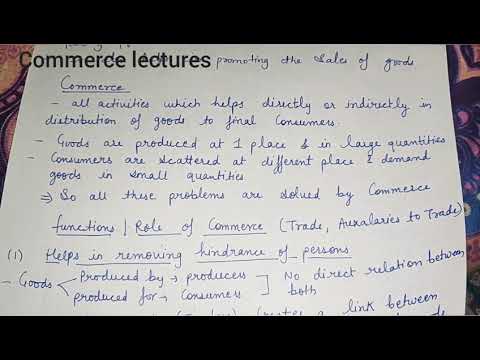 Commerce lectures
promoting the Sales of goods
Commerce
- all activities which helps directly or indirectly in
distribution of goods to final Consumers.
- Goods are produced at 1 place & in large quantities
- Consumers are scattered at different place & demand
goods in small quantities
⇒ So all these problems are solved by Commerce
functions | Role of Commerce (Trade, Auxalaries to Trade)
(1) Helps in removing hindrance of persons
- Goods Produced by → producers
produced for → Consumers
No direct relation between
both
creates a link between